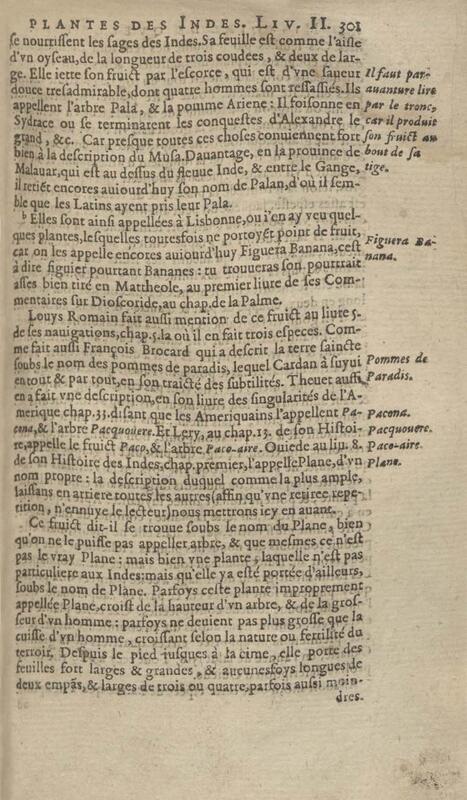 PLANTES DES INDES. LIV. II. 301
se nourrissent les sages des Indes. Sa feuille est comme l'aisle
d'vn oyseau, de la longueur de trois coudees, & deux de lar-
ge. Elle iette son fruict par l'escorce, qui est d'vne saueur
douce tresadmirable, dont quatre hommes sont ressasiés. Ils
appellent l'arbre Pala, & la pomme Ariene: Il foisonne en
Sydrace ou se terminarent les conquestes d'Alexandre le
grand, &c. Car presque toutes ces choses conuiennent fort
bien à la description du Musa. Dauantage, en la prouince de
Malauar, qui est au dessus du fleuue Inde, & entre le Gange,
il retiẽt encores auiourd'huy son nom de Palan, d'où il sem-
ble que les Latins ayent pris leur Pala.
Il faut par-
auanture lire
par le tronc,
car il produit
son fruict au
bout de sa
tige.
b Elles sont ainsi appellées à Lisbonne, ou i'en ay veu quel-
ques plantes, lesquelles toutesfois ne portoyẽt point de fruit,
car on les appelle encores auiourd'huy Figuera Banana, c'est
à dire figuier pourtant Bananes: tu trouueras son pourtrait
asses bien tiré en Mattheole, au premier liure de ses Com-
mentaires sur Dioscoride, au chap. de la Palme.
Figuera Ba-
nana.
Louys Romain fait aussi mention de ce fruict au liure 5.
de ses nauigations, chap. 5. la où il en fait trois especes. Com-
me fait aussi François Brocard qui a descrit la terre saincte
soubs le nom des pommes de paradis, lequel Cardan à suyui
en tout & par tout, en son traicté des subtilités. Theuet aussi
en a fait vne description, en son liure des singularités de l'A-
merique chap. 33. disant que les Ameriquains l'appellent Pa-
cona, & l'arbre Pacquouere. Et Lery, au chap. 13. de son Histoi-
re, appelle le fruict Paco, & l'arbre Paco-aire. Ouiede au liu. 8.
de son Histoire des Indes, chap. premier, l'appelle Plane, d'vn
nom propre: la description duquel comme la plus ample,
laissans en arriere toutes les autres (affin qu'vne reitree repe-
tition, n'ennuye le lecteur) nous mettrons icy en auant.
Pommes de
Paradis.
Pacona.
Pacquouere.
Paco-aire.
Plane.
Ce fruict dit-il se trouue soubs le nom du Plane, bien
qu'on ne le puisse pas appeller arbre, & que mesmes ce n'est
pas le vray Plane: mais bien vne plante, laquelle n'est pas
particuliere aux Indes: mais qu'elle y a esté portée d'ailleurs,
soubs le nom de Plane. Parfoys ceste plante improprement
appellée Plane, croist de la hauteur d'vn arbre, & de la gros-
seur d'vn homme: parfoys ne deuient pas plus grosse que la
cuisse d'vn homme, croissant selon la nature ou fertilité du
terroir. Despuis le pied iusques à la cime, elle porte des
feuilles fort larges & grandes, & aucunesfoys longues de
deux empãs, & larges de trois ou quatre, parfois aussi moin-
dres.